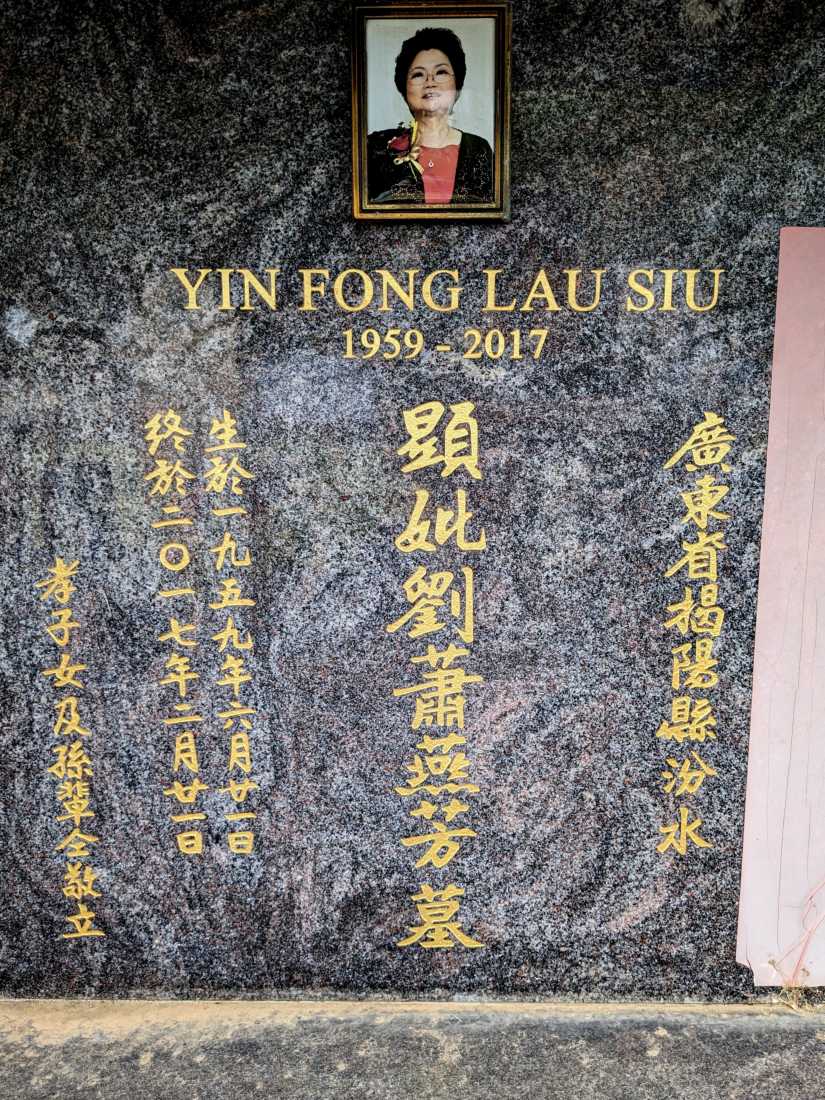 YIN FONG LAU SIU
1959 - 2017
廣東省揭陽縣汾水
顯妣劉蕭燕芳墓
生於一九五九年六月廿一日
終於二〇一七年二月廿一日
孝子女及孫輩仝敬立